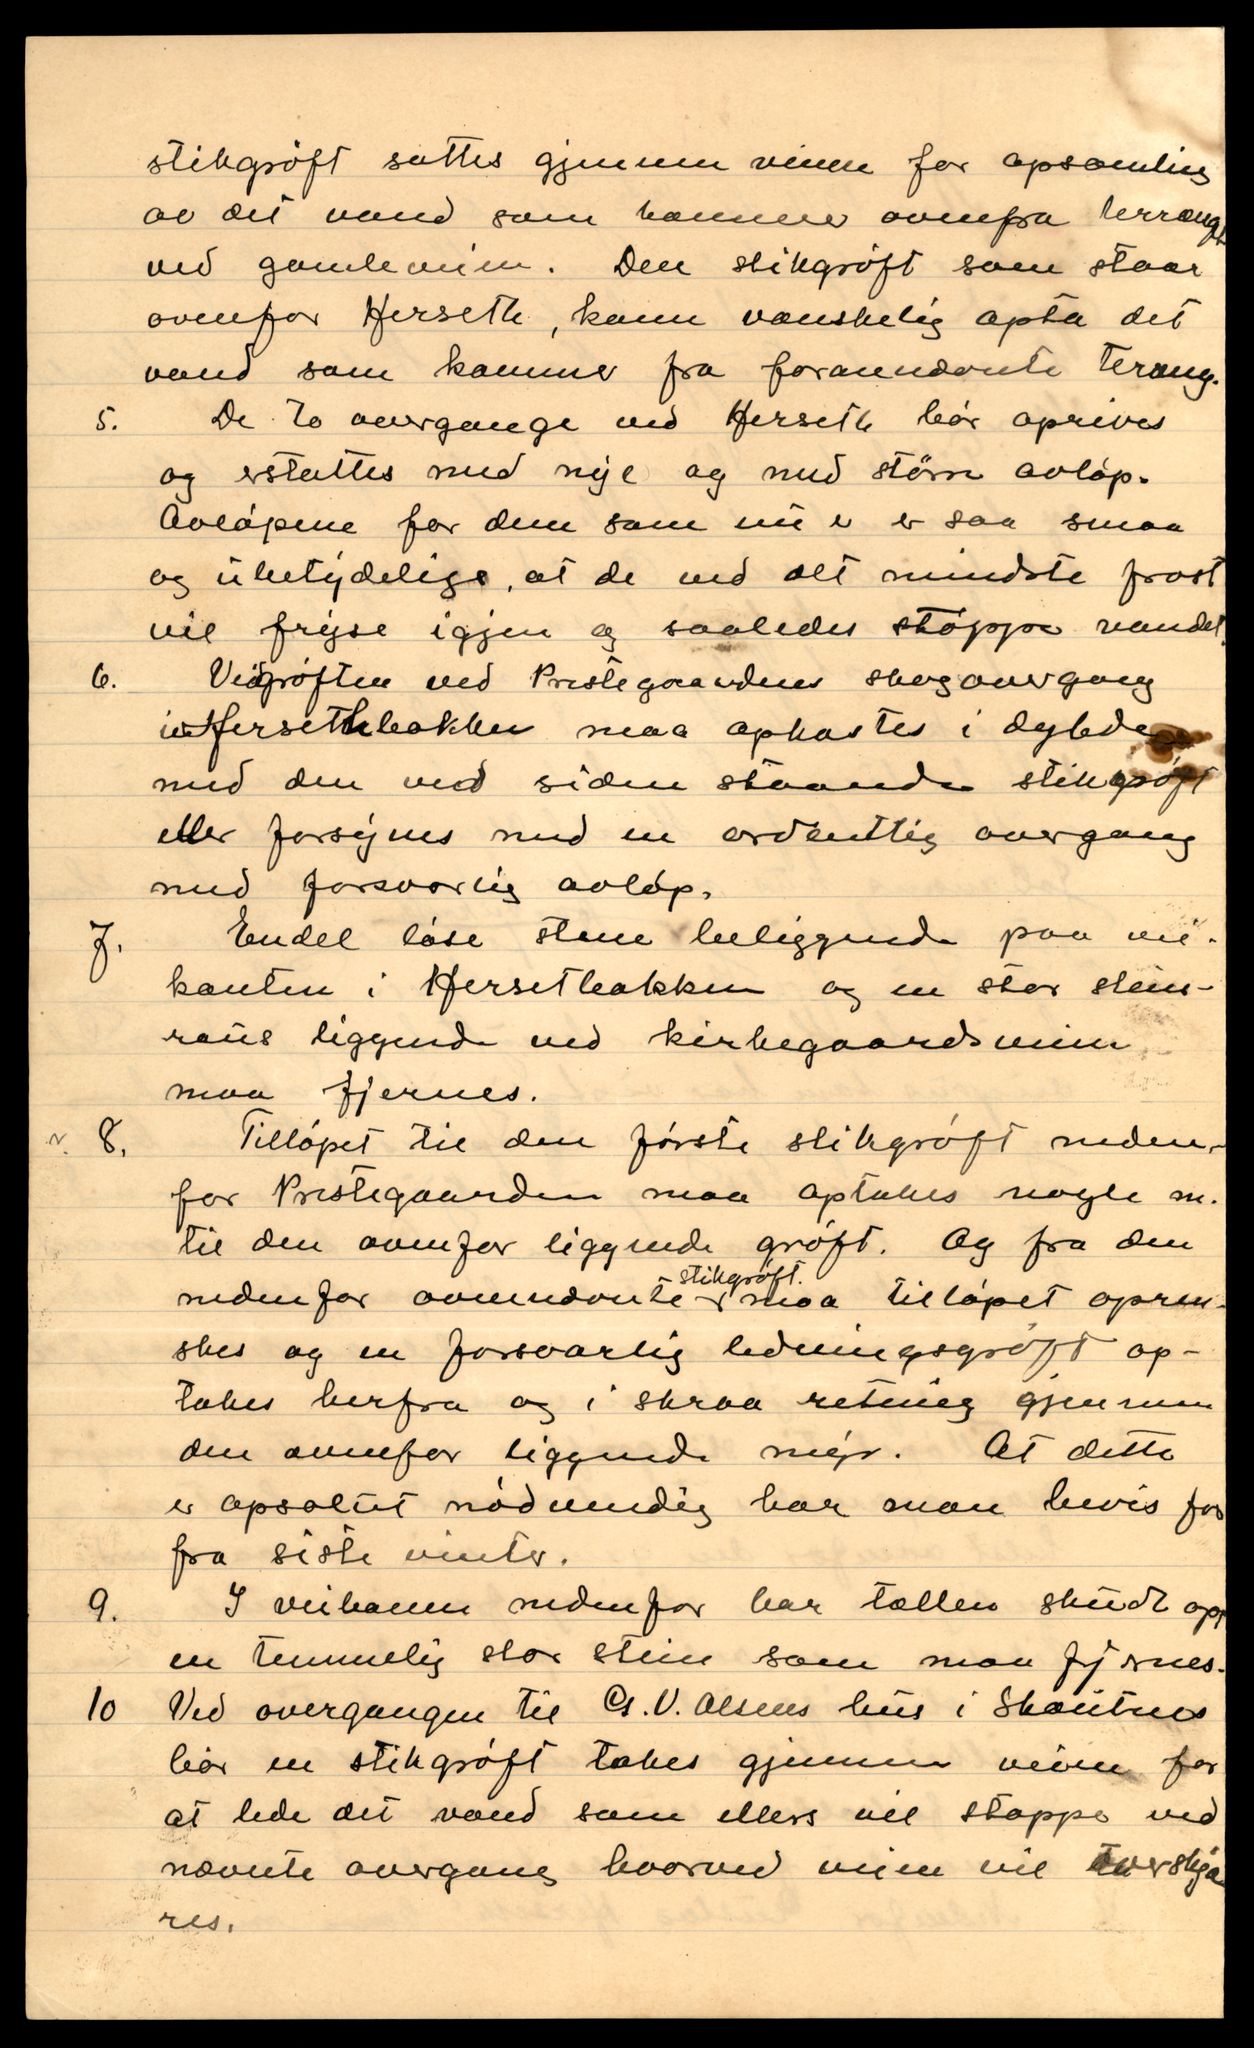 stikgrøft sættes gjennem veien for opsamling
av det vand som kommer ovenfra terrænget
ved gamleveien. Den stikgrøft som staar
ovenfor Herseth, kann vanskelig opta det
vand som kommer fra forannævnte teræng.
5. De to overgange ved Herseth bør oprives
og erstattes med nye og med større avløp.
Avløpene for dem som nu e er saa smaa
og ubetydelige, at de ved det mindste frost
vil fryse igjen og saaledes støppe vandet.
6. Veigrøften ved Prestegaardens skogovergang
i Hersethbakken maa opkastes i dybde
med den ved siden staaende stikgrøft
eller forsynes med en ordentlig overgang
med forsvarlig avløp.
7. Endel løse stene beliggende paa vei-
kanten i Hersetbakken og en stor stein-
raus liggende ved kirkegaardsveien
maa fjernes.
8. Tilløpet til den første stikgrøft neden-
for Prestegaarden maa optakes nogle m.
til den ovenfor liggende grøft. Og fra den
stikgrøft.
nedenfor ovennævnte maa tilløpet opren-
skes og en forsvarlig ledningsgrøft op-
takes herfra og i skraa retning gjennem
den ovenfor liggende myr. At dette
er apsolut nødvendig har man bevis for
fra siste vinter.
9. I veibanen nedenfor har tællen skudt op
en temmelig stor stein som maa fjernes.
10 Ved overgangen til Cs. V. Olsens hus i Skoutnes
bør en stikgrøft takes gjennem veien for
at lede det vand som ellers vil stoppe ved
nævnte overgang hvorved veien vil overskjæ
res.